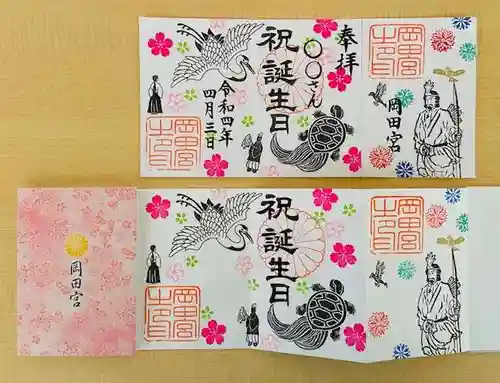 奉拝
〇〇さん
祝誕生日
令和四年
四月三日
岡田宮
岡田宮
祝誕生日
岡田宮
岡田宮
岡田宮
岡田宮